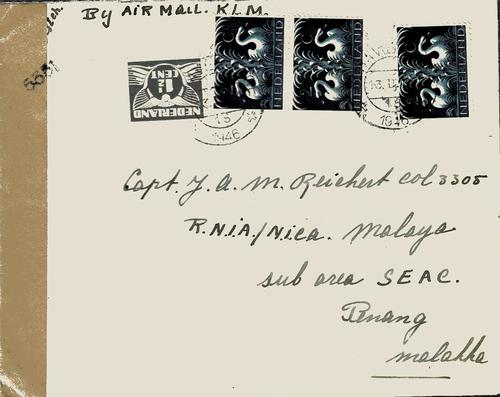 By AIR MAIL. K.L.M.
5531
1½
CENT
NEDERLAND
NEDERLAND
NEDERLAND
NEDERLAND
13
1946
Capt. J. A. M. Reichert col 3305
R.N.I.A/N.I.C.A. Malaya
sub area SEAC.
Penang
malakka